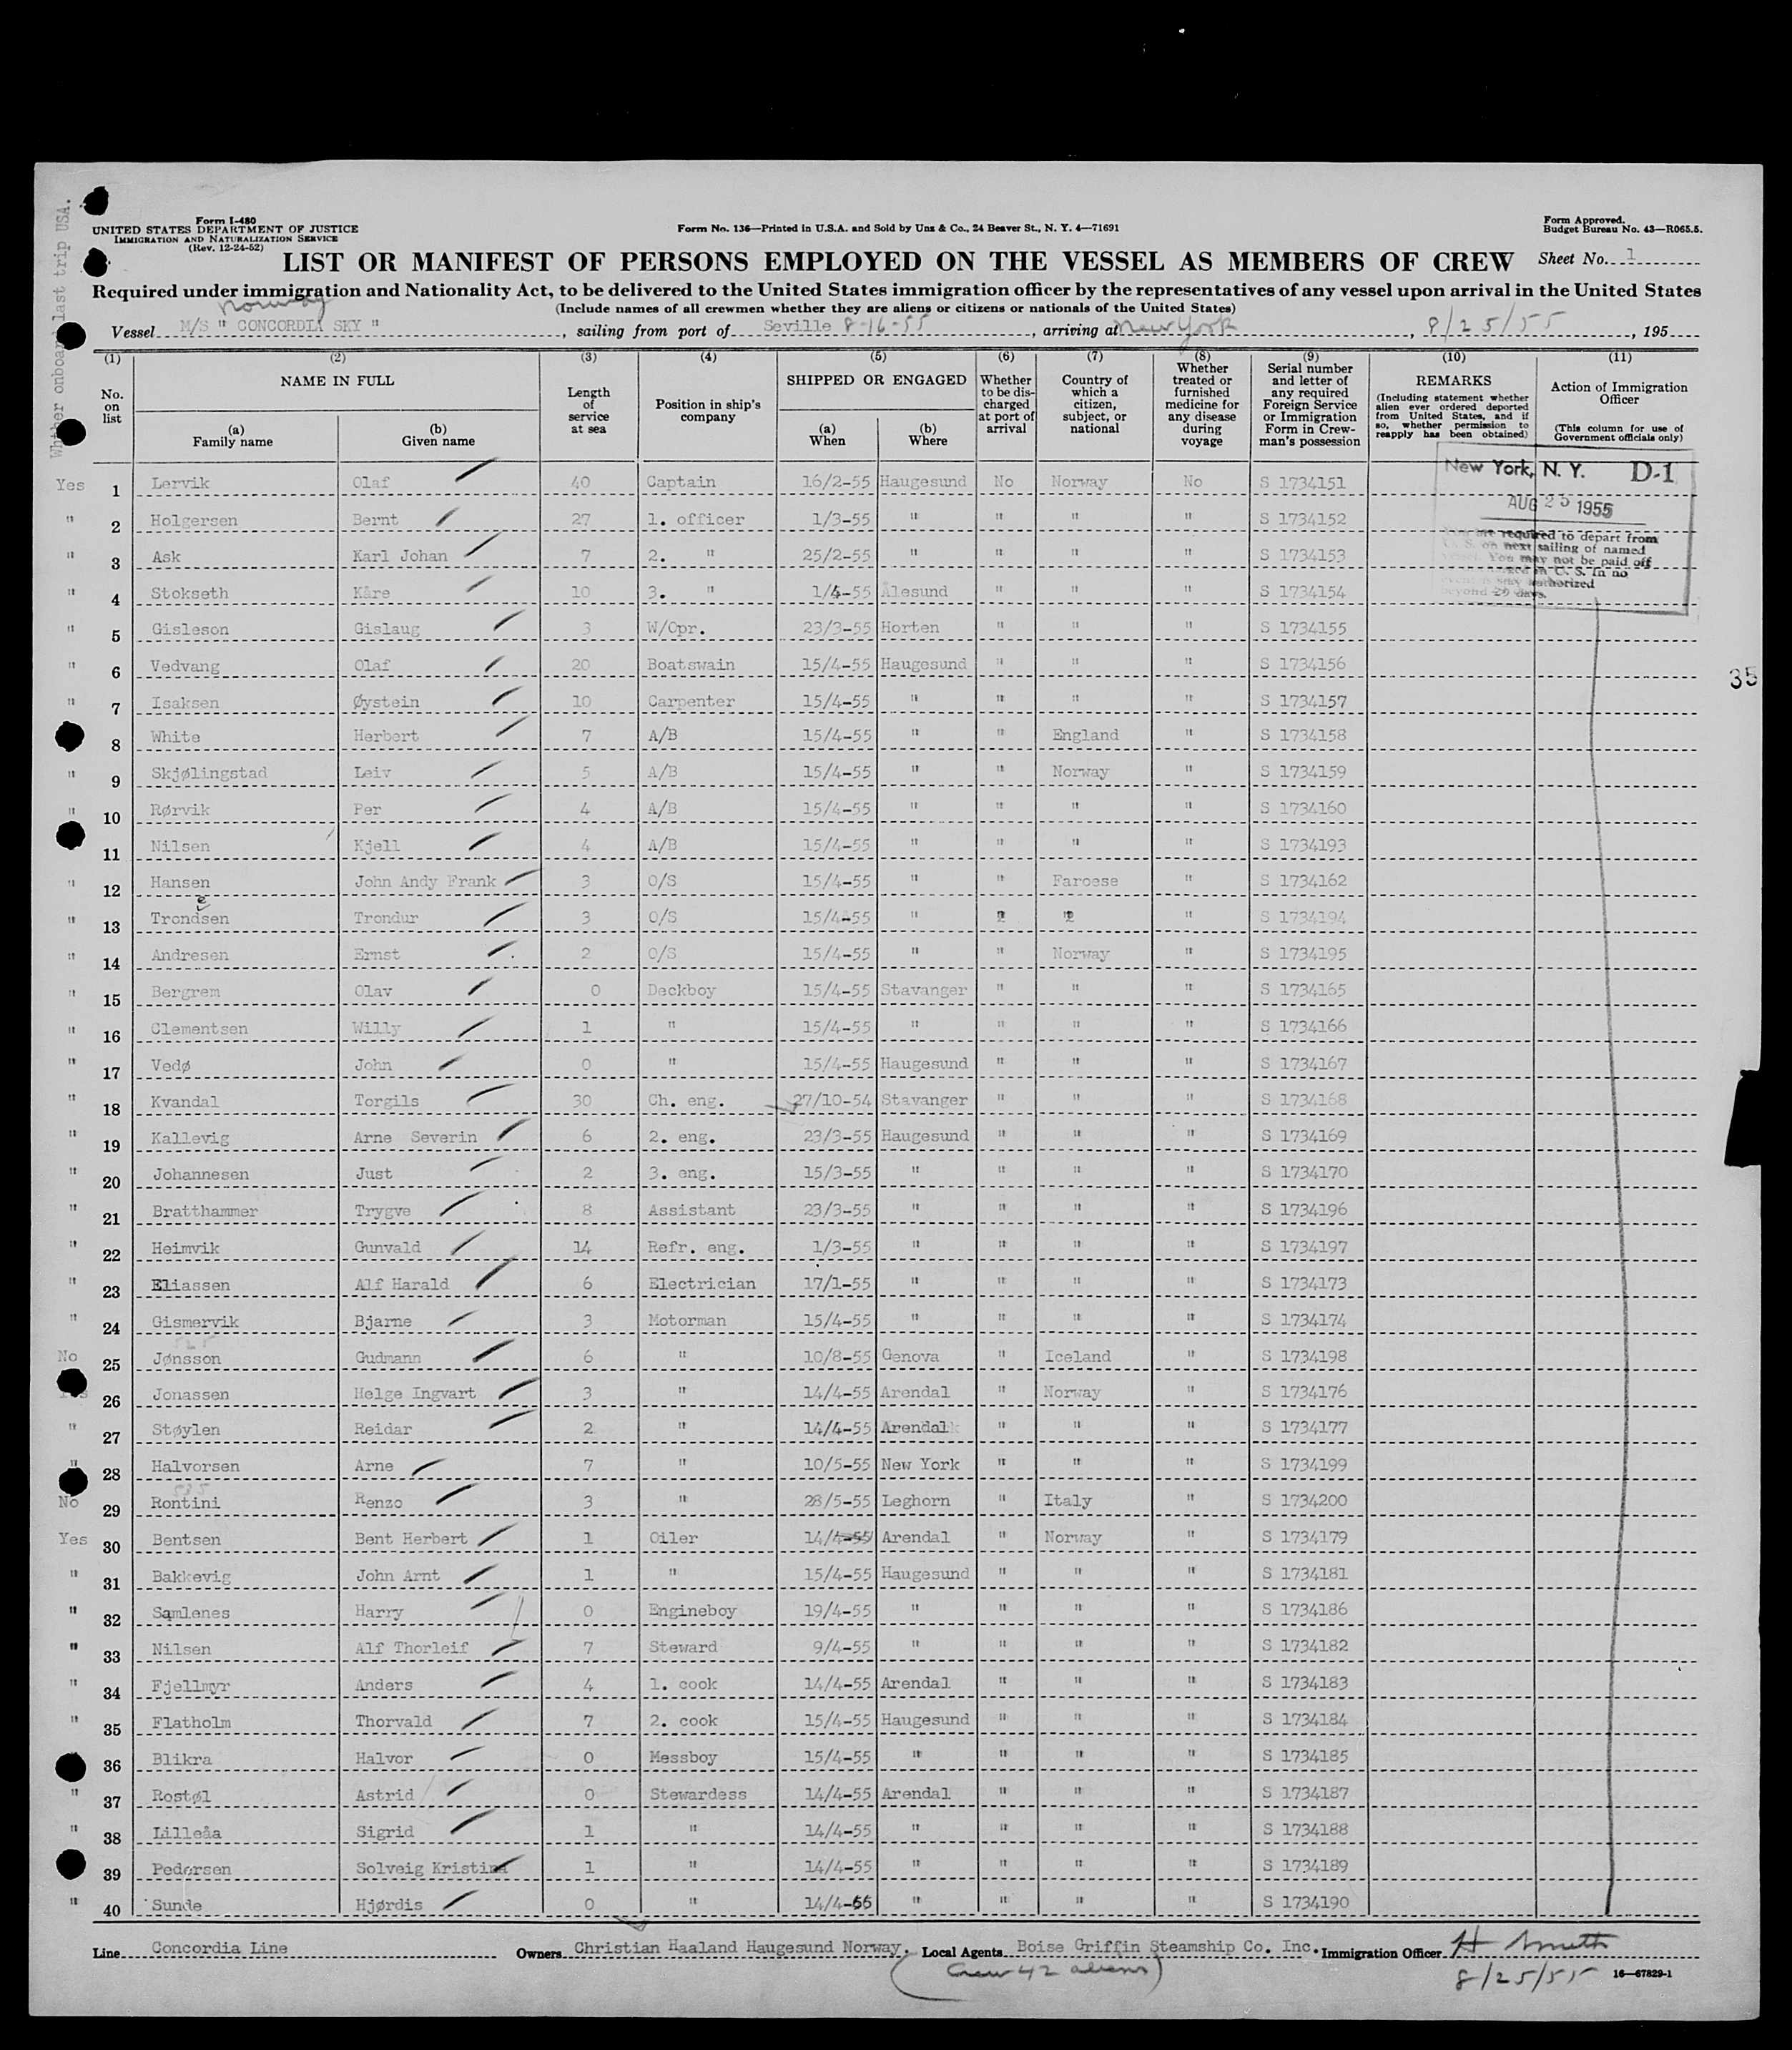 Whether onboard last trip USA.
Form I-480
UNITED STATES DEPARTMENT OF JUSTICE
IMMIGRATION AND NATURALIZATION SERVICE
(Rev. 12-24-52)
Form No. 136—Printed in U.S.A. and Sold by Unz & Co., 24 Beaver St., N. Y. 4—71691
Form Approved.
Budget Bureau No. 43—R065.5.
LIST OR MANIFEST OF PERSONS EMPLOYED ON THE VESSEL AS MEMBERS OF CREW
Sheet No. 1
Required under immigration and Nationality Act, to be delivered to the United States immigration officer by the representatives of any vessel upon arrival in the United States
(Include names of all crewmen whether they are aliens or citizens or nationals of the United States)
Norway
Vessel M/S " CONCORDIA SKY ", sailing from port of Seville 8-16-55, arriving at New York, 8/25/55, 195
(1) (2) (3) (4) (5) (6) (7) (8) (9) (10) (11)
No. on list
NAME IN FULL
(a) Family name
(b) Given name
Length of service at sea
Position in ship's company
SHIPPED OR ENGAGED
(a) When
(b) Where
Whether to be discharged at port of arrival
Country of which a citizen, subject, or national
Whether treated or furnished medicine for any disease during voyage
Serial number and letter of any required Foreign Service or Immigration Form in Crewman's possession
REMARKS
(Including statement whether alien ever ordered deported from United States, and if so, whether permission to reapply has been obtained)
Action of Immigration Officer
(This column for use of Government officials only)
New York, N. Y. D-1
AUG 25 1955
required to depart from
on next sailing of named
You may not be paid off
in U. S. In no
authorized
beyond 29 days.
Yes 1 Lervik Olaf 40 Captain 16/2-55 Haugesund No Norway No S 1734151
" 2 Holgersen Bernt 27 1. officer 1/3-55 " " " " S 1734152
" 3 Ask Karl Johan 7 2. " 25/2-55 " " " " S 1734153
" 4 Stokseth Kåre 10 3. " 1/4-55 Ålesund " " " S 1734154
" 5 Gisleson Gislaug 3 W/Opr. 23/3-55 Horten " " " S 1734155
" 6 Vedvang Olaf 20 Boatswain 15/4-55 Haugesund " " " S 1734156
" 7 Isaksen Øystein 10 Carpenter 15/4-55 " " " " S 1734157
8 White Herbert 7 A/B 15/4-55 " " England " S 1734158
" 9 Skjølingstad Leiv 5 A/B 15/4-55 " " Norway " S 1734159
" 10 Rørvik Per 4 A/B 15/4-55 " " " " S 1734160
11 Nilsen Kjell 4 A/B 15/4-55 " " " " S 1734193
" 12 Hansen John Andy Frank 3 O/S 15/4-55 " " Faroese " S 1734162
" 13 Trondsen Trondur 3 O/S 15/4-55 " " " " S 1734194
" 14 Andresen Ernst 2 O/S 15/4-55 " " Norway " S 1734195
" 15 Bergrem Olav 0 Deckboy 15/4-55 Stavanger " " " S 1734165
" 16 Clementsen Willy 1 " 15/4-55 " " " " S 1734166
" 17 Vedø John 0 " 15/4-55 Haugesund " " " S 1734167
" 18 Kvandal Torgils 30 Ch. eng. 27/10-54 Stavanger " " " S 1734168
" 19 Kallevig Arne Severin 6 2. eng. 23/3-55 Haugesund " " " S 1734169
" 20 Johannesen Just 2 3. eng. 15/3-55 " " " " S 1734170
" 21 Bratthammer Trygve 8 Assistant 23/3-55 " " " " S 1734196
" 22 Heimvik Gunvald 14 Refr. eng. 1/3-55 " " " " S 1734197
" 23 Eliassen Alf Harald 6 Electrician 17/1-55 " " " " S 1734173
" 24 Gismervik Bjarne 3 Motorman 15/4-55 " " " " S 1734174
No 25 Jønsson Gudmann 6 " 10/8-55 Genova " Iceland " S 1734198
Yes 26 Jonassen Helge Ingvart 3 " 14/4-55 Arendal " Norway " S 1734176
" 27 Støylen Reidar 2 " 14/4-55 Arendal " " " S 1734177
" 28 Halvorsen Arne 7 " 10/5-55 New York " " " S 1734199
No 29 Rontini Renzo 3 " 28/5-55 Leghorn " Italy " S 1734200
Yes 30 Bentsen Bent Herbert 1 Oiler 14/4-55 Arendal " Norway " S 1734179
" 31 Bakkevig John Arnt 1 " 15/4-55 Haugesund " " " S 1734181
" 32 Samlenes Harry 0 Engineboy 19/4-55 " " " " S 1734186
" 33 Nilsen Alf Thorleif 7 Steward 9/4-55 " " " " S 1734182
" 34 Fjellmyr Anders 4 1. cook 14/4-55 Arendal " " " S 1734183
" 35 Flatholm Thorvald 7 2. cook 15/4-55 Haugesund " " " S 1734184
36 Blikra Halvor 0 Messboy 15/4-55 " " " " S 1734185
" 37 Rostøl Astrid 0 Stewardess 14/4-55 Arendal " " " S 1734187
" 38 Lilleåa Sigrid 1 " 14/4-55 " " " " S 1734188
39 Pedersen Solveig Kristina 1 " 14/4-55 " " " " S 1734189
" 40 Sunde Hjørdis 0 " 14/4-55 " " " " S 1734190
35
Line Concordia Line Owners Christian Haaland Haugesund Norway. Local Agents Boise Griffin Steamship Co. Inc. Immigration Officer H Smith
(Crew 42 aliens)
8/25/55
16—67829-1